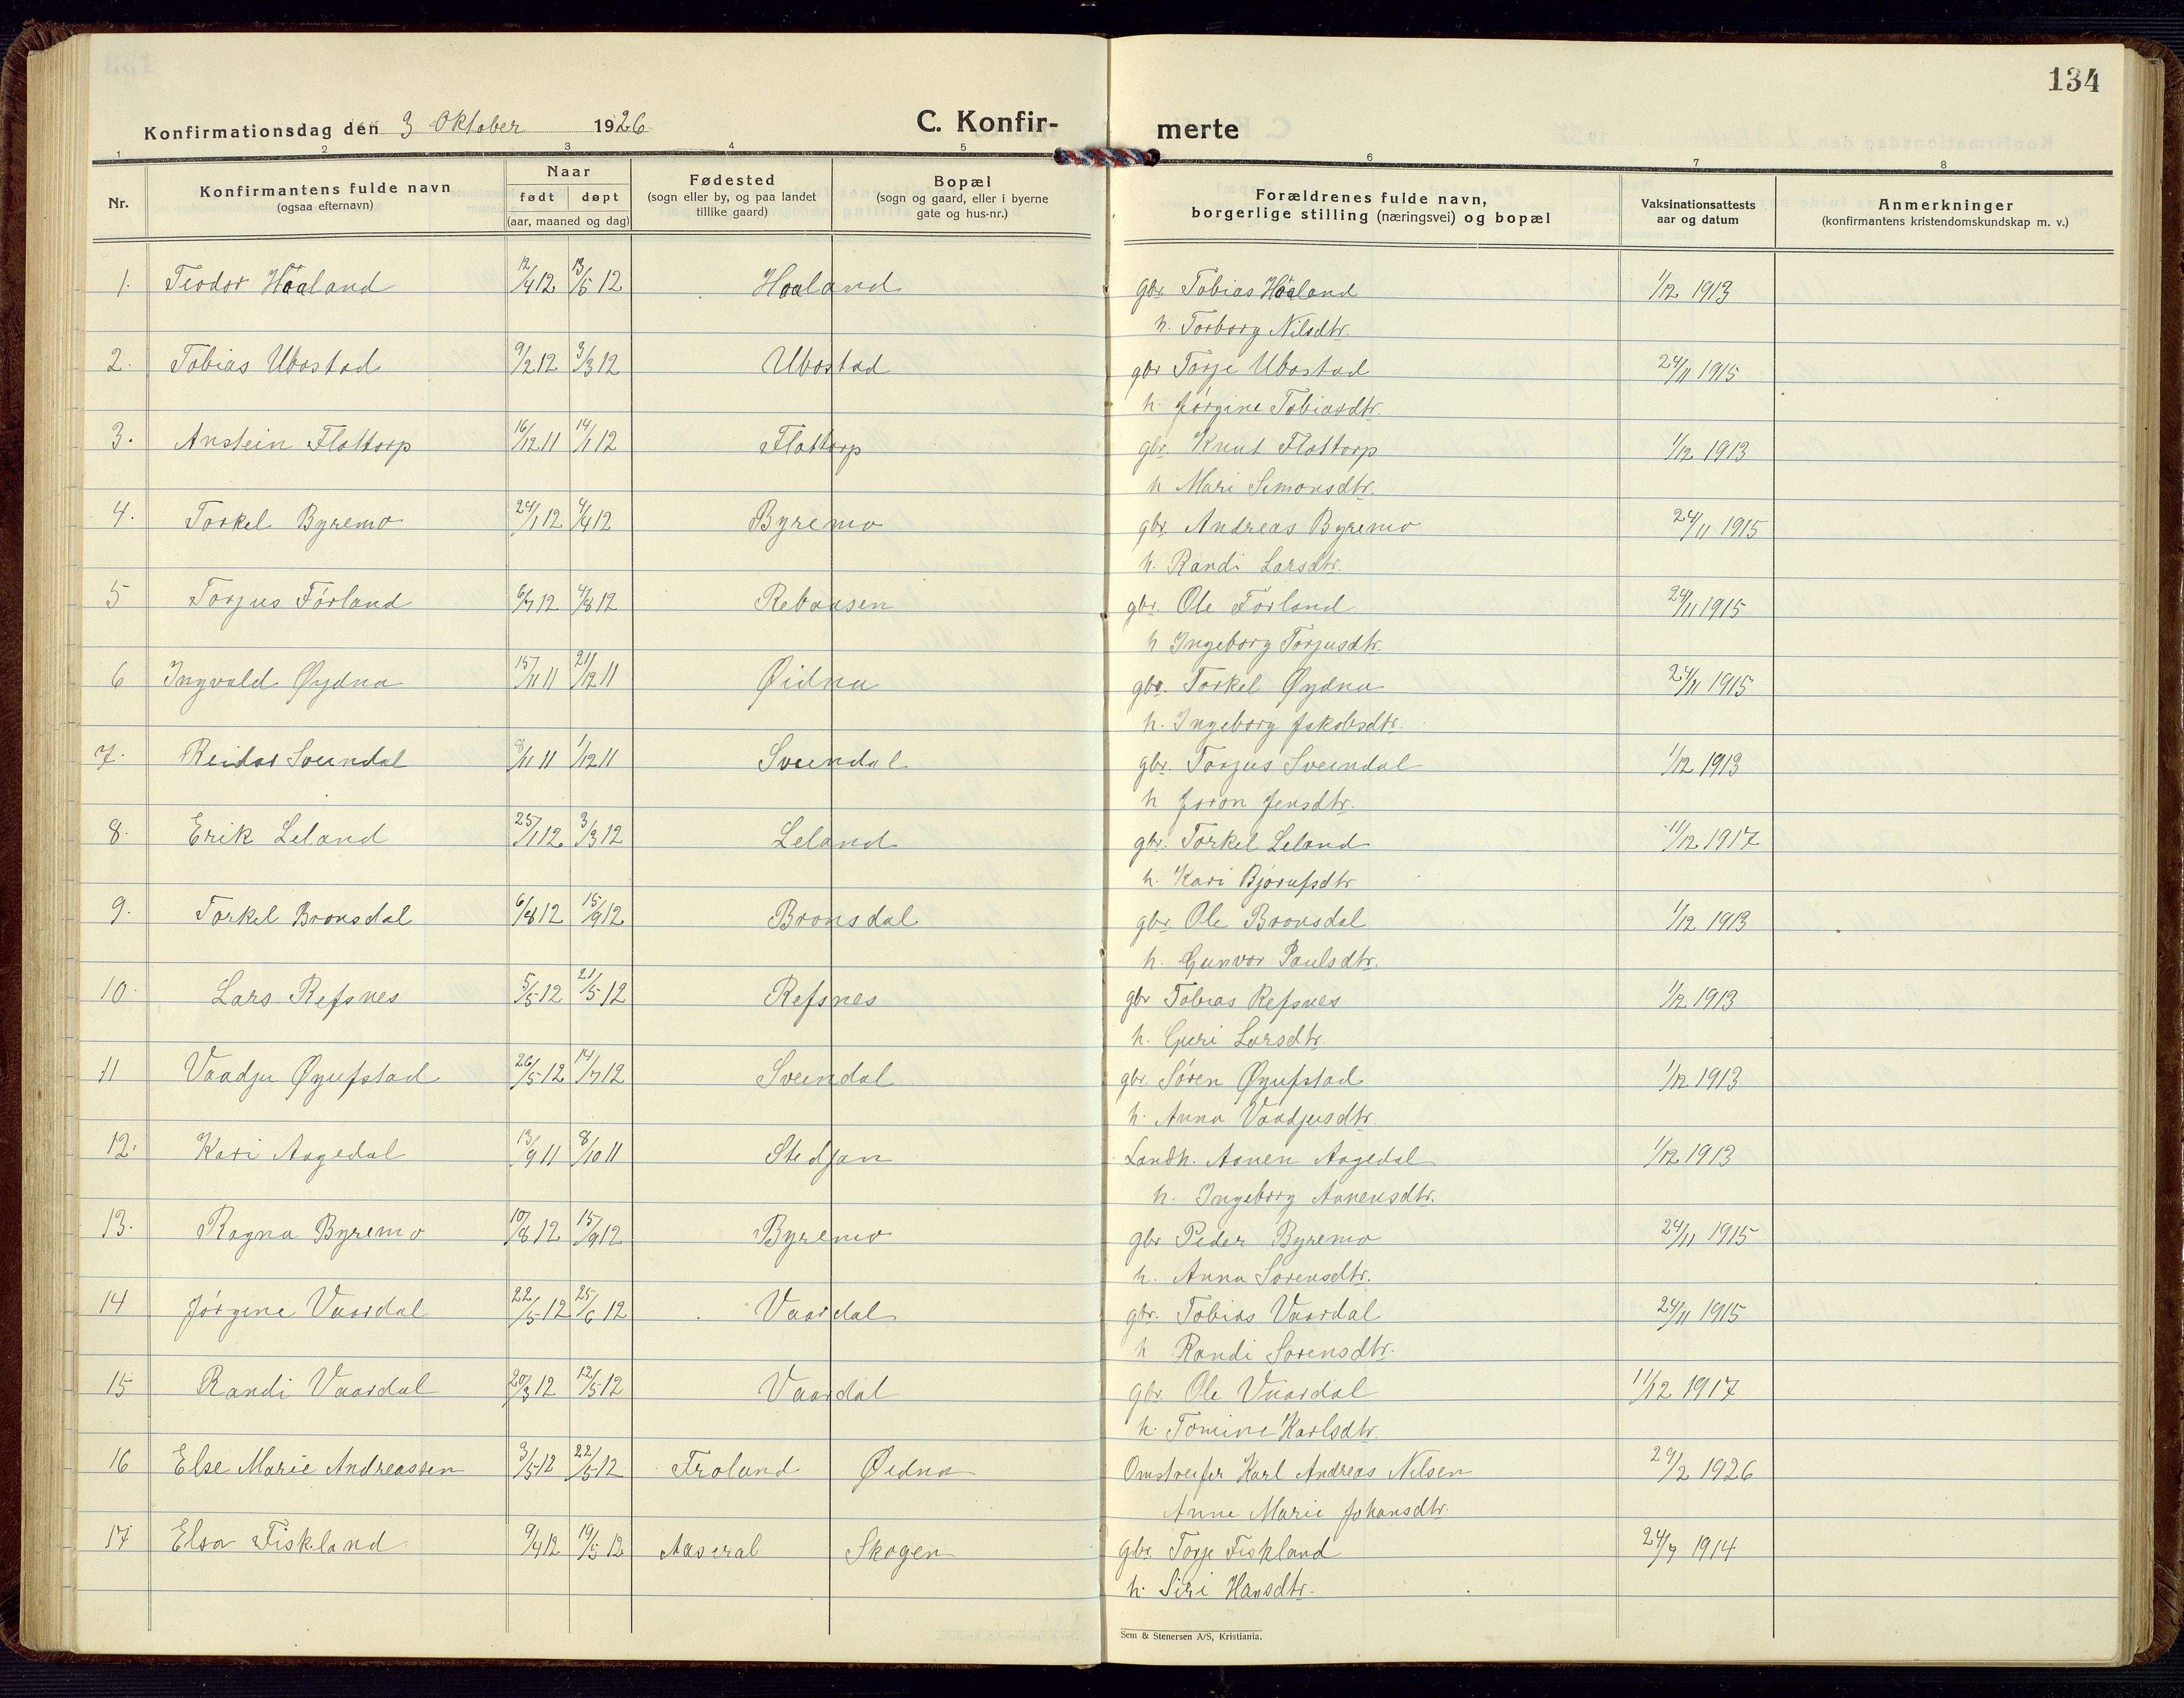 134
Konfirmationsdag den 3 Oktober 1926 C. Konfir- merte
1 2 3 4 5 6 7 8
Nr. Konfirmantens fulde navn (ogsaa efternavn) Naar født døpt (aar, maaned og dag) Fødested (sogn eller by, og paa landet tillike gaard) Bopæl (sogn og gaard, eller i byerne gate og hus-nr.) Forældrenes fulde navn, borgerlige stilling (næringsvei) og bopæl Vaksinationsattests aar og datum Anmerkninger (konfirmantens kristendomskundskap m. v.)
1. Teodor Haaland 12/4 12 13/5 12 Haaland gbr. Tobias Haaland 1/12 1913
h. Torborg Nilsdtr.
2. Tobias Ubostad 9/2 12 3/3 12 Ubostad gbr Torje Ubostad 24/11 1915
h. Jørgine Tobiasdtr.
3. Anstein Flottorp 16/12 11 14/1 12 Flottorp gbr. Knut Flottorp 1/12 1913
h Mari Simonsdtr.
4. Torkel Byremo 24/1 12 4/4 12 Byremo gbr. Andreas Byremo 24/11 1915
h. Randi Larsdtr.
5 Torjus Førland 6/7 12 4/8 12 gbr. Ole Førland 24/11 1915
h Ingeborg Torjusdtr.
6 Ingvald Øydna 15/11 11 21/12 11 Øidna gbr. Torkel Øydna 24/11 1915
h. Ingeborg Jakobsdtr.
7. Reidar Sveindal 8/11 11 1/12 11 Sveindal gbr. Torjus Sveindal 1/12 1913
h Joron Jensdtr.
8. Erik Leland 25/1 12 3/3 12 Leland gbr. Torkel Leland 11/12 1917
h. Kari Bjørufsdtr
9. Torkel Bronsdal 6/8 12 15/9 12 Bronsdal gbr. Ole Bronsdal 1/12 1913
h. Gunvor Paulsdtr.
10. Lars Refsnes 5/5 12 21/5 12 Refsnes gbr Tobias Refsnes 1/12 1913
h. Guri Larsdtr.
11 Vaadju Øyufstad 26/5 12 14/7 12 Sveindal gbr. Søren Øyufstad 1/12 1913
h. Anna Vaadjusdtr.
12. Kari Aagedal 13/9 11 8/10 11 Stedjan Landh. Aanen Aagedal 1/12 1913
h. Ingeborg Aanensdtr.
13. Ragna Byremo 10/8 12 15/9 12 Byremo gbr Peder Byremo 24/11 1915
h. Anna Sørensdtr.
14 Jørgine Vaardal 22/5 12 25/6 12 Vaardal gbr. Tobias Vaardal 24/11 1915
h Randi Sørensdtr.
15 Randi Vaardal 20/3 12 12/5 12 Vaardal gbr. Ole Vaardal 11/12 1917
h. Tomine Karlsdtr.
16 Else Marie Andreassen 3/5 12 22/5 12 Froland Øidna Omstreifer Karl Andreas Nilsen 29/2 1926
Anne Marie Johansdtr.
17 Elsa Fiskland 9/4 12 19/5 12 Aaseral Skogen gbr. Torje Fiskland 24/7 1914
h. Siri Hansdtr.
Sem & Stenersen A/S, Kristiania.